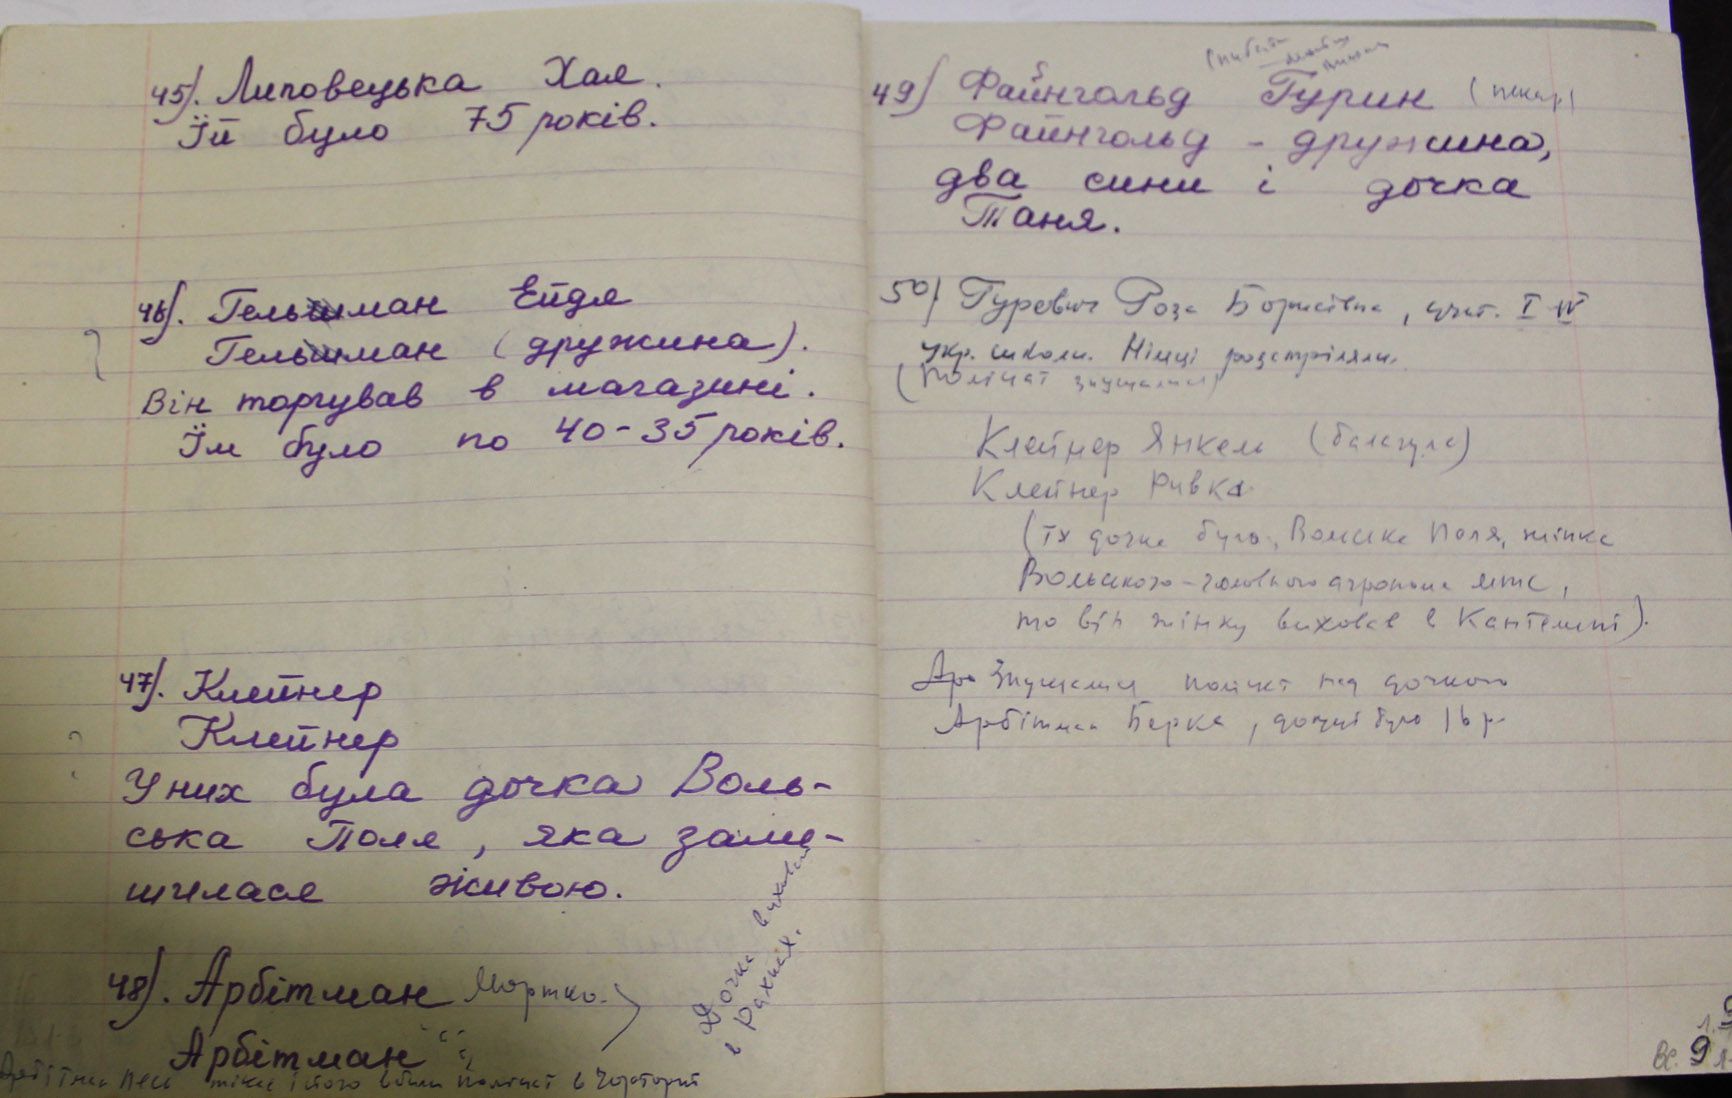 45). Липовецька Хая.
Їй було 75 років.
46). Гельман Ейдя
Гельман (дружина).
Він торгував в магазині.
Їм було по 40-35 років.
47). Клейнер
Клейнер
У них була дочка Воль-
ська Поля, яка зали-
шилася живою.
48). Арбітман Мортко.
Арбітман
Дочка
в
жінка і його вбили поліцаї в
49) Файнгольд Гурин (пекар)
Файнгольд - дружина,
два сини і дочка
Таня.
50) Гуревич Роза Борисівна, учит. I-IV
укр. школи. Німці розстріляли.
(поліцаї знущалися)
Клейнер Янкель (балагула)
Клейнер Ривка
(їх дочка була, Вольська Поля, жінка
Вольського - головного агронома МТС,
то він жінку виховав в
Знущалися поліцаї над дочкою
Арбітмана Берка, дочці було 16 р.
9